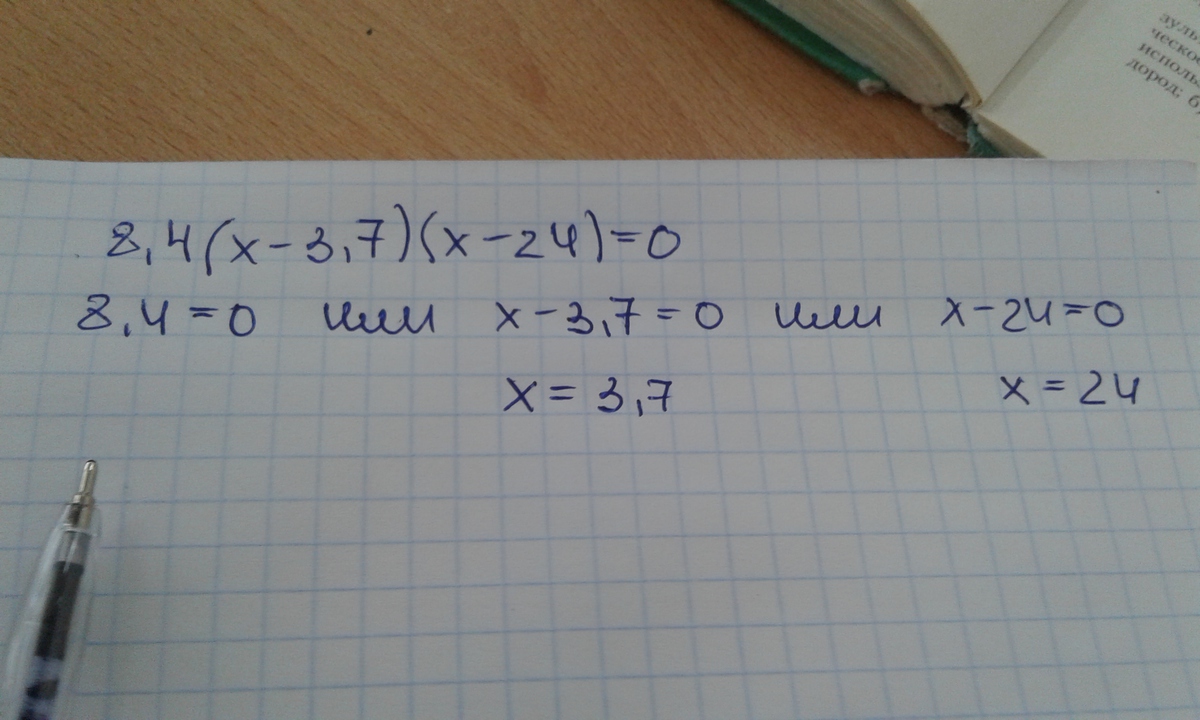 зуль
ческо
исполь
дород;
8,4(x-3,7)(x-24)=0
8,4=0 или x-3,7=0 или x-24=0
x=3,7 x=24